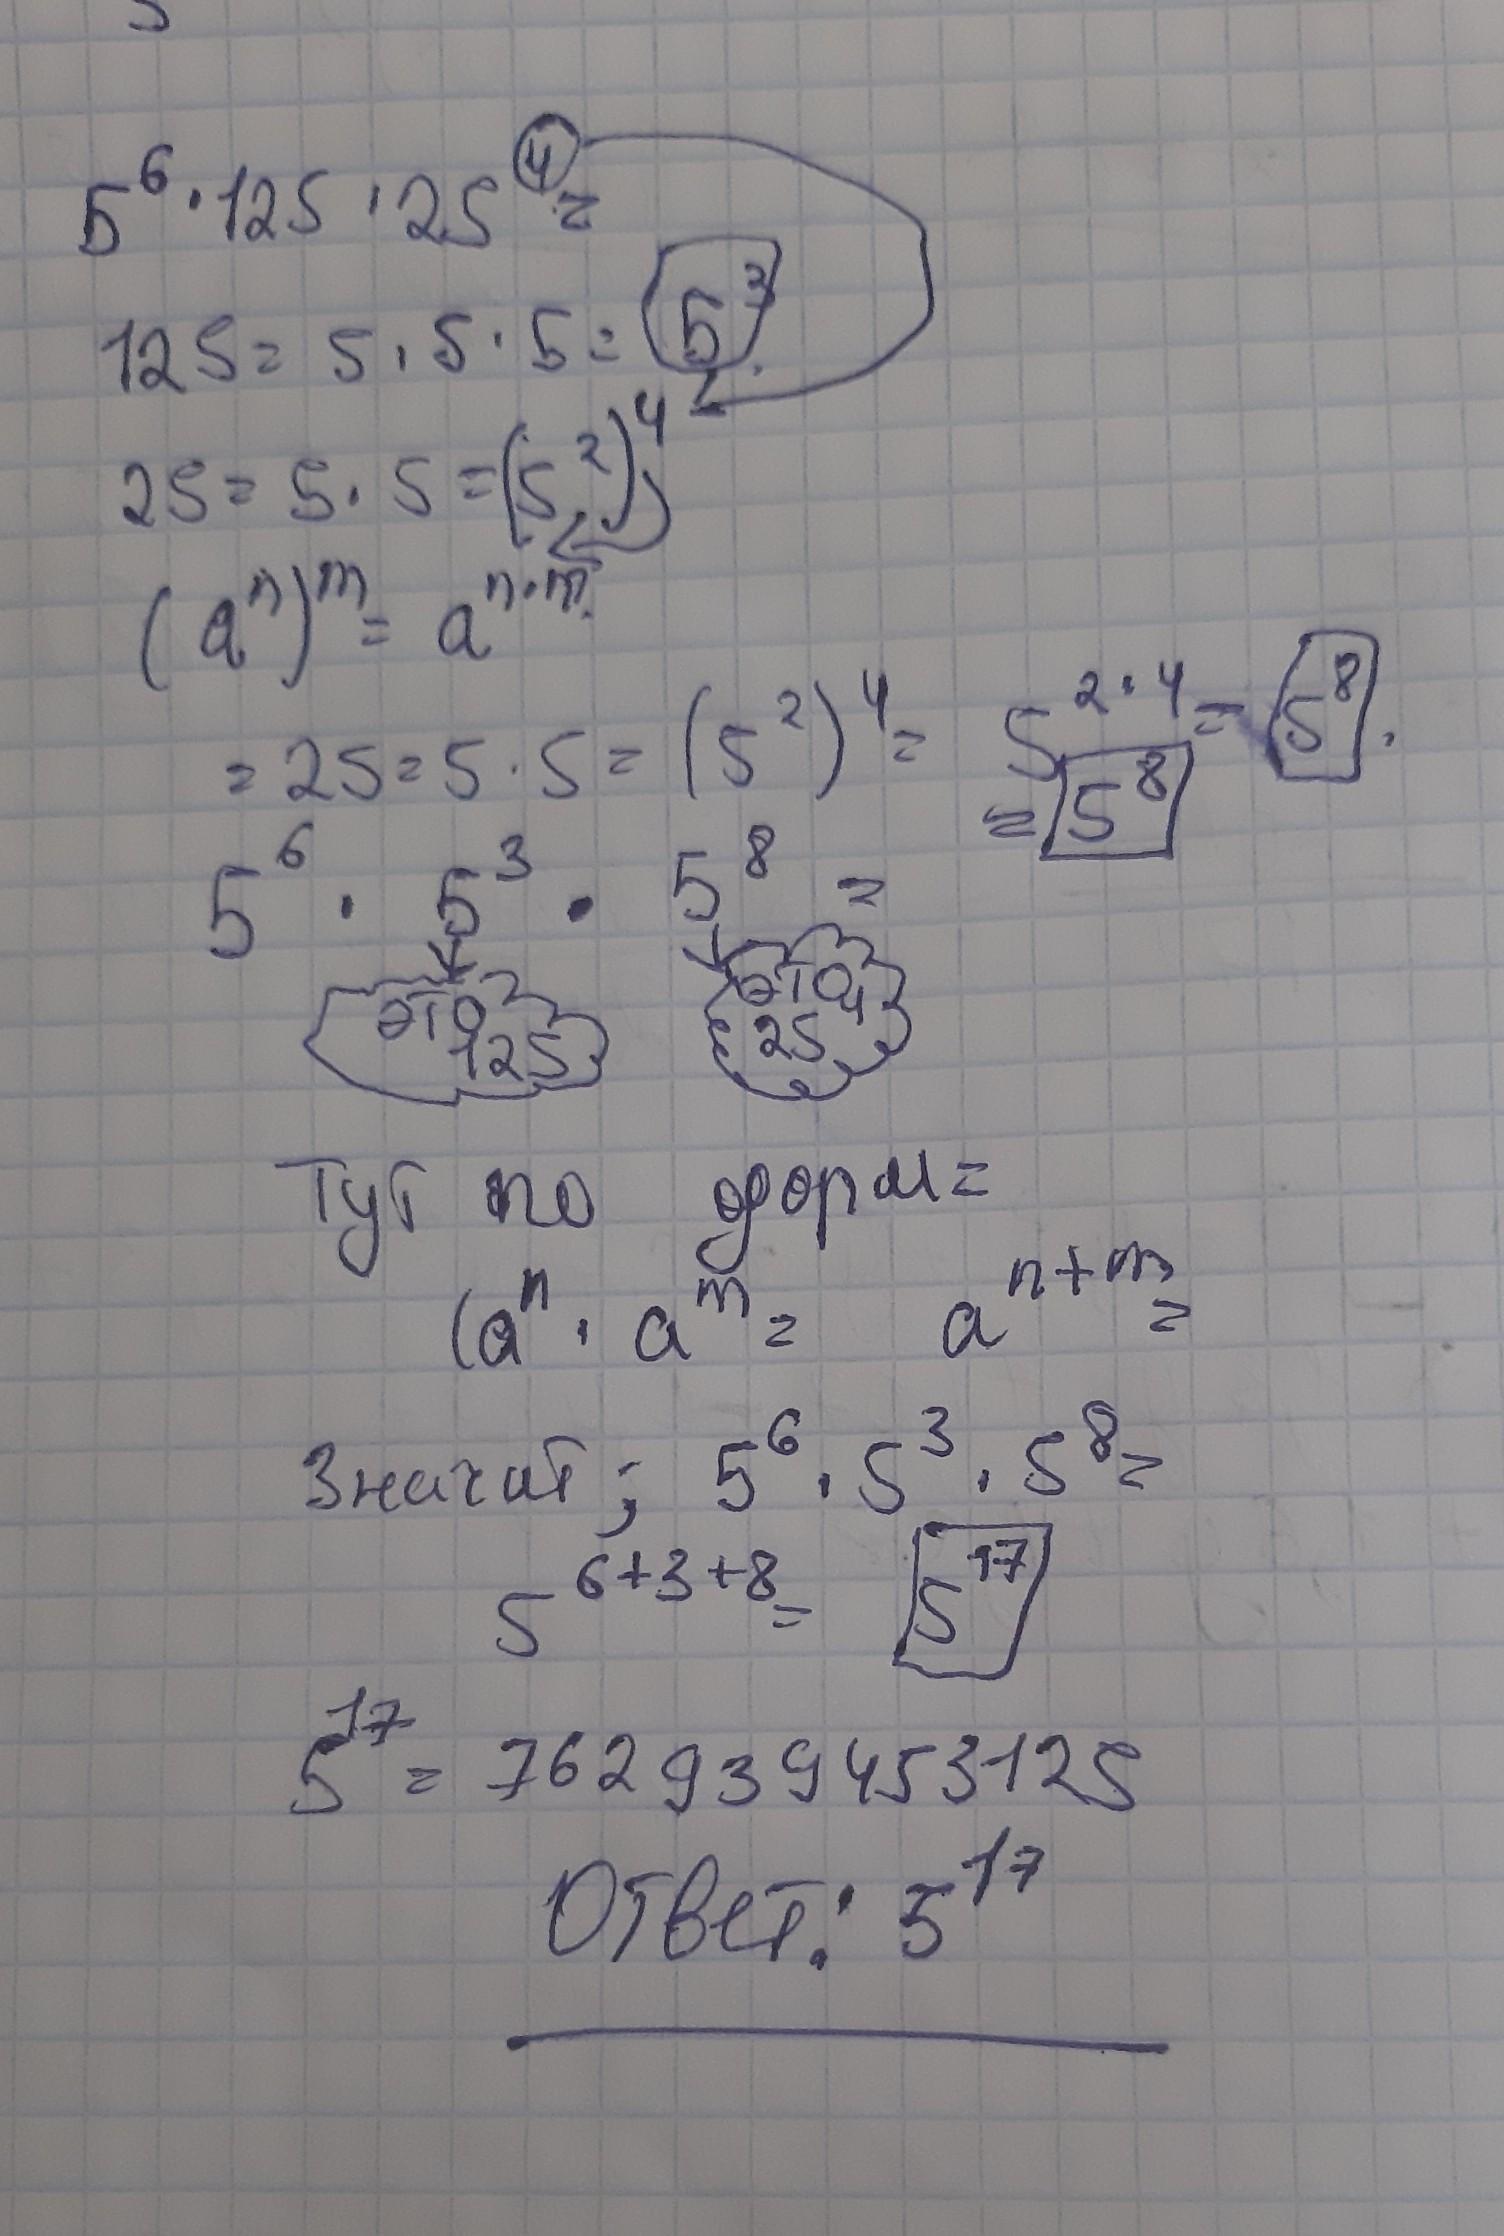 5⁶·125·25⁴=
125=5·5·5=5³.
25=5·5=(5²)⁴
(aⁿ)ᵐ=aⁿ·ᵐ.
=25=5·5=(5²)⁴=5²·⁴=5⁸.
=5⁸
5⁶·5³·5⁸=
это 125
это 25⁴
Тут по форм=
(aⁿ·aᵐ= aⁿ⁺ᵐ=
Значит; 5⁶·5³·5⁸=
5⁶⁺³⁺⁸= 5¹⁷
5¹⁷=762939453125
Ответ: 5¹⁷